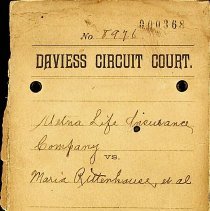 900368
No. 8976
DAVIESS CIRCUIT COURT.
Aetna Life Insurance
Company
VS.
Maria Rittenhouse, et al